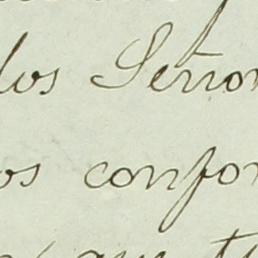 los Señor
os confor
que